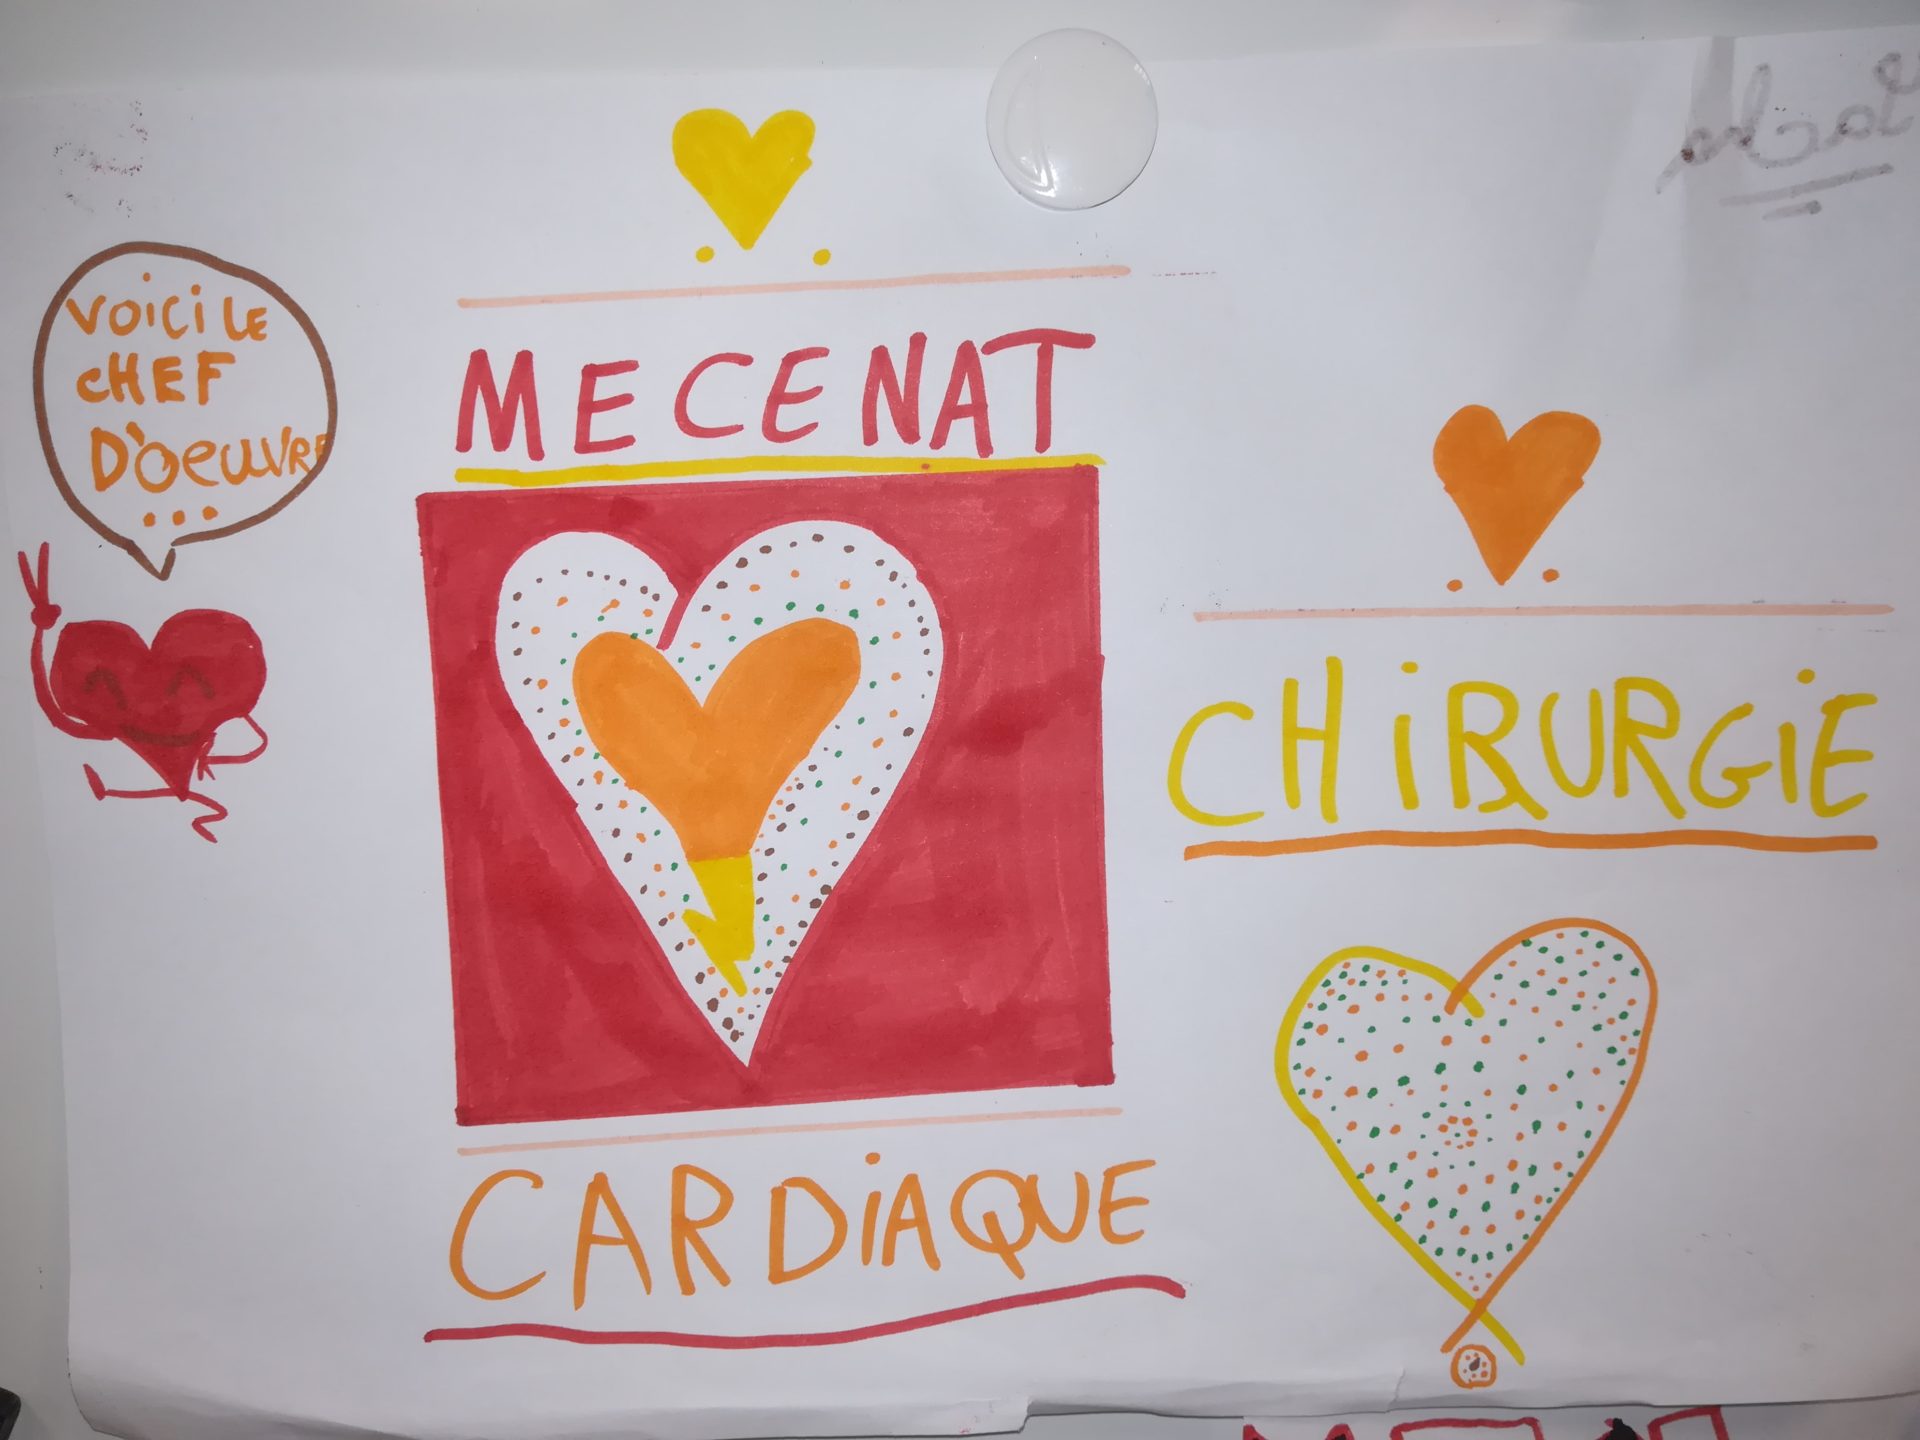 VOiCi LE
CHEF
D'OEUVRE
...
MECENAT
CHiRURGiE
CARDiAQUE